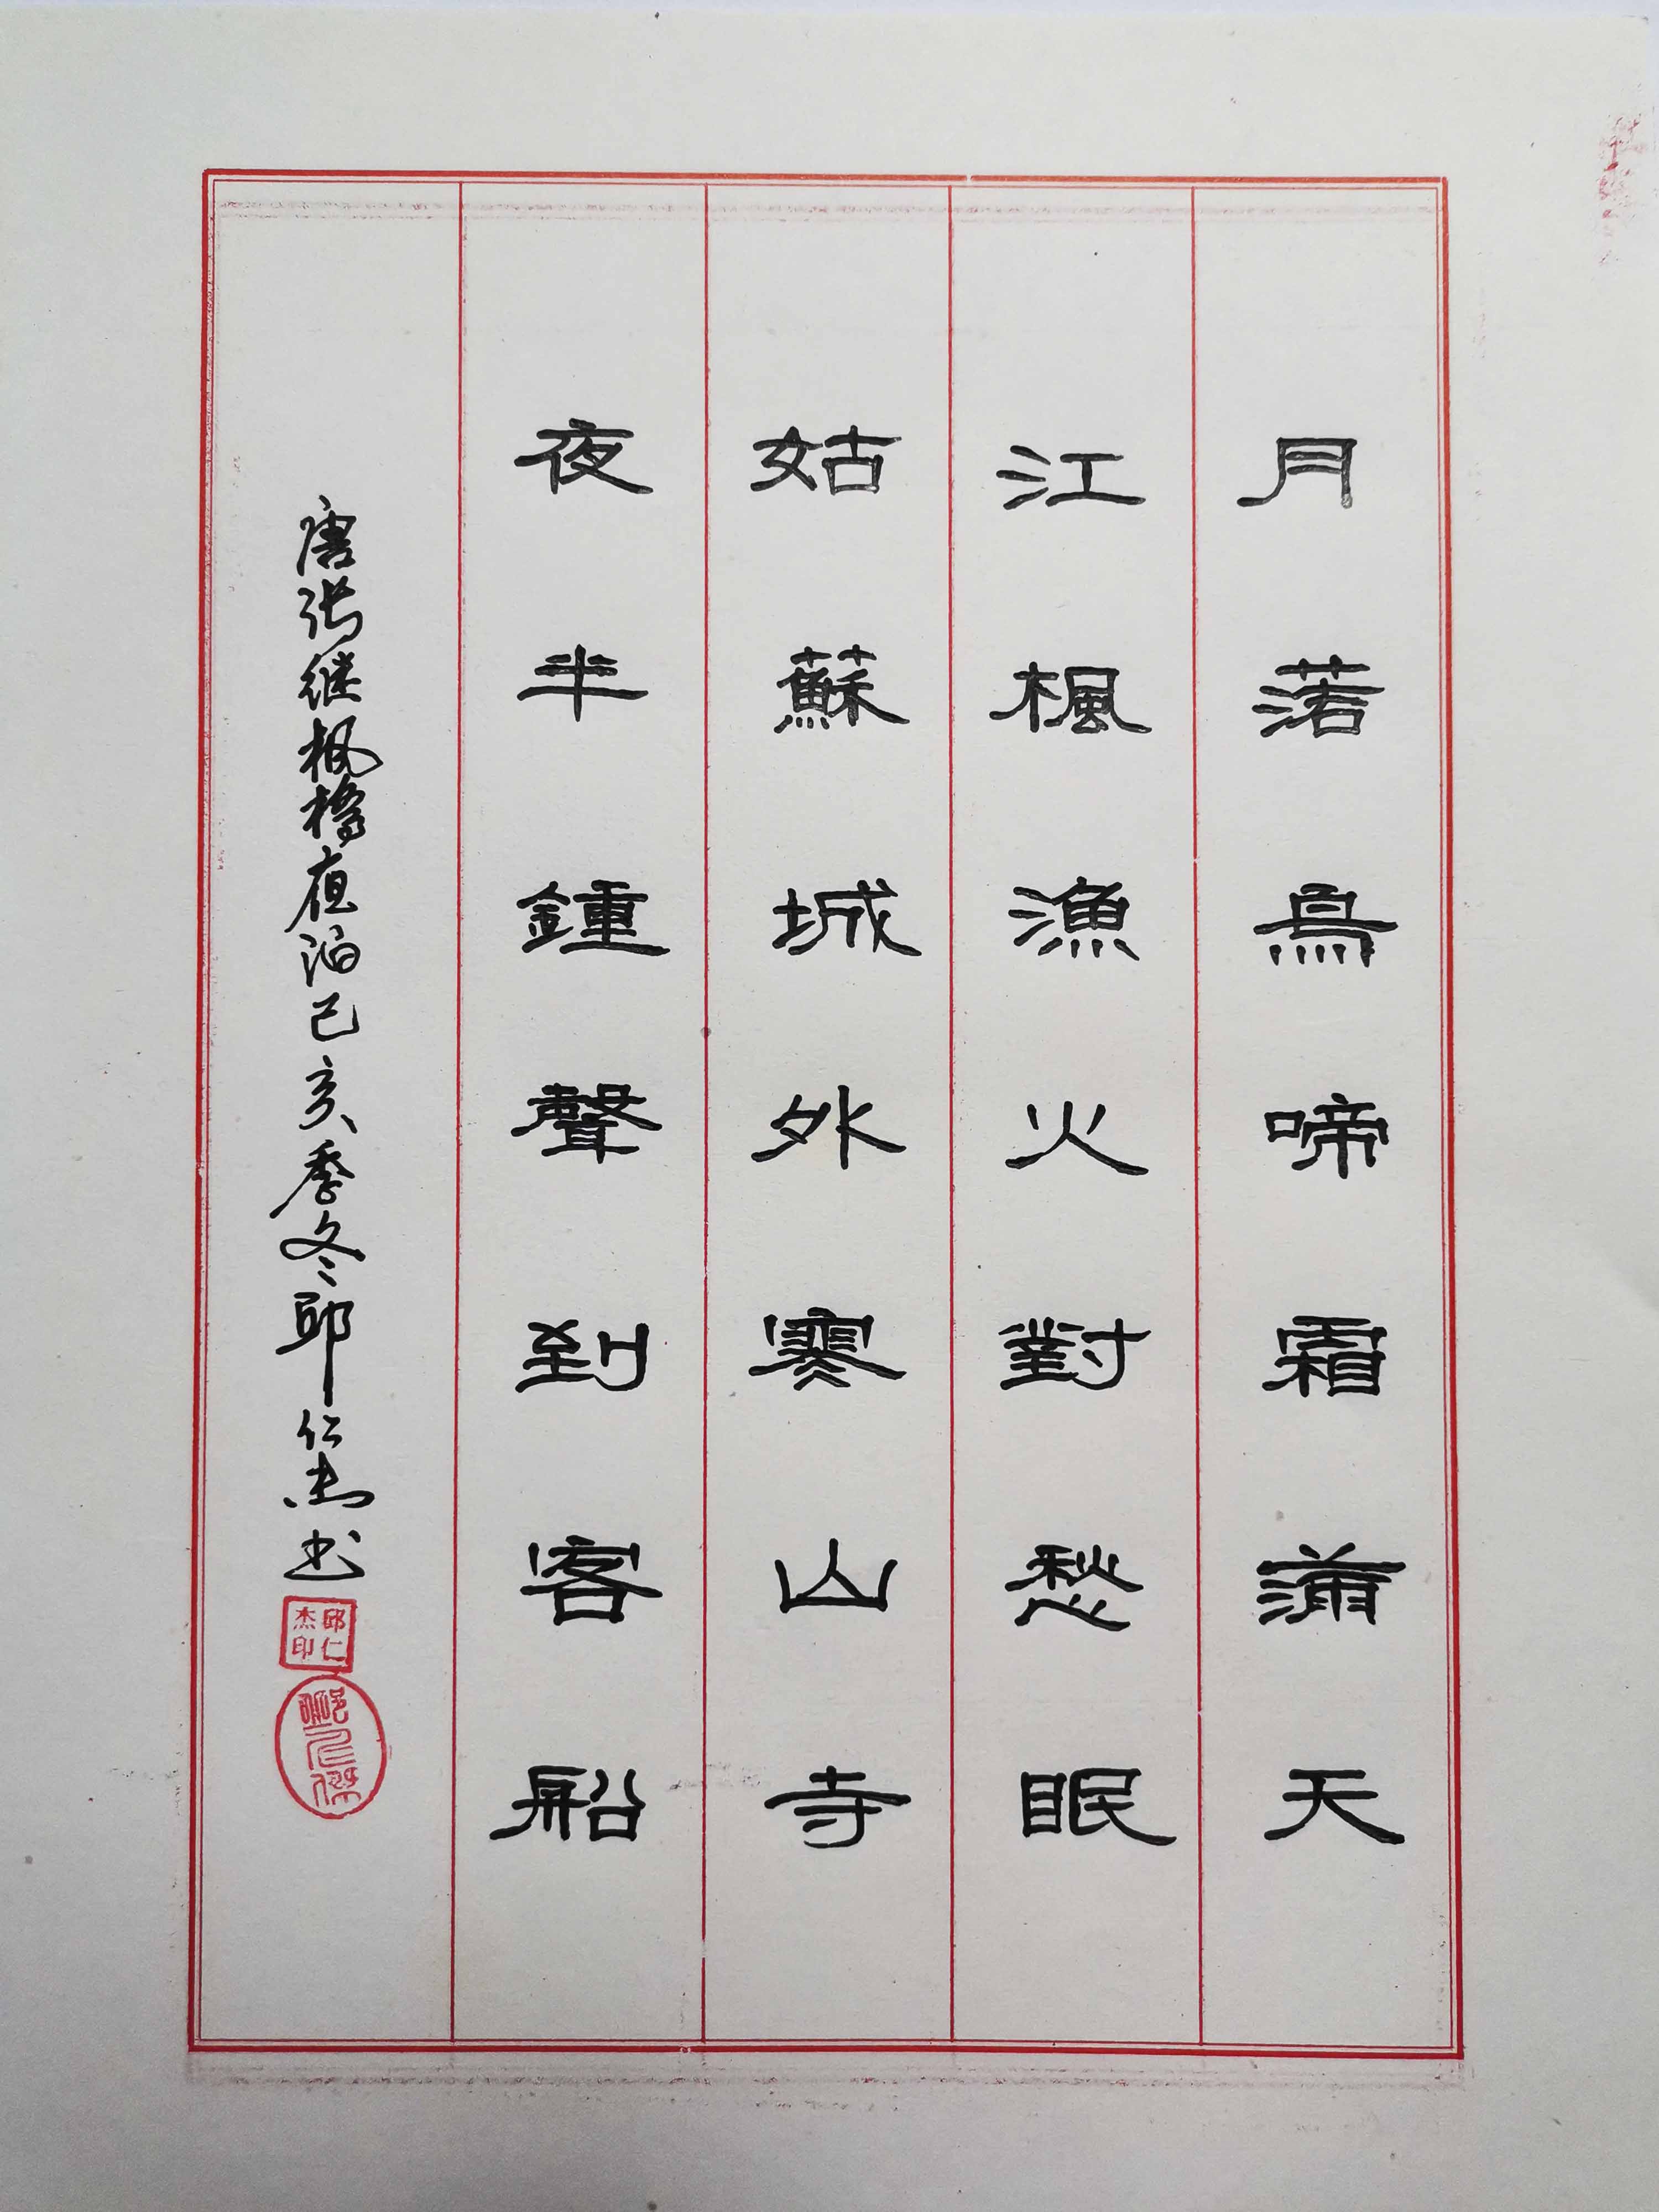 月落烏啼霜滿天
江楓漁火對愁眠
姑蘇城外寒山寺
夜半鍾聲到客船
唐张继枫橋夜泊己亥季冬邱仁杰书
邱仁杰印
邱仁傑